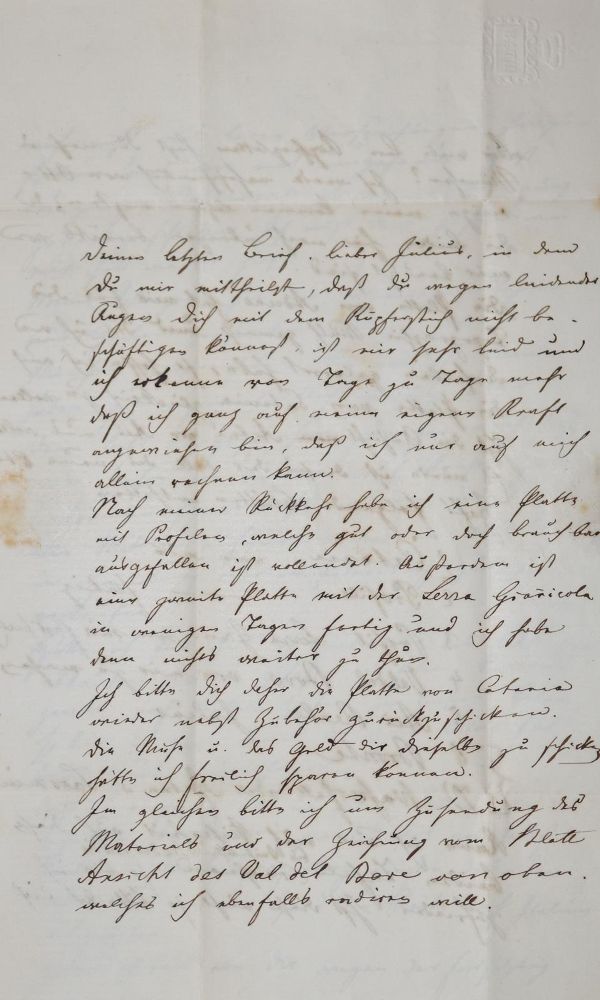 Deinen letzten Brief, lieber Julius, in dem
Du mir mittheilst, daß du wegen leidender
Augen Dich mit dem Kupferstich nicht be-
schäftigen könnest, ist mir sehr leid und
ich erkenne von Tage zu Tage mehr
daß ich ganz auf meine eigene Kraft
angewiesen bin, daß ich nur auf mich
allein rechnen kann.
Nach meiner Rückkehr habe ich eine Platte
mit Profilen, welche gut oder doch brauchbar
ausgefallen ist vollendet. Außerdem ist
eine zweite Platte mit der Serra
in wenigen Tagen fertig und ich habe
dann nichts weiter zu thun.
Ich bitte dich daher die Platte von Catania
wieder nebst Zubehör zurückzuschicken.
Die Mühe u. das Geld dir dieselbe zu schicken
hätte ich freilich sparen können.
Im gleichen bitte ich um Zusendung des
Materials und der Zeichnung vom Blatt
Ansicht des Val del Bove von oben.
welches ich ebenfalls radiren will.